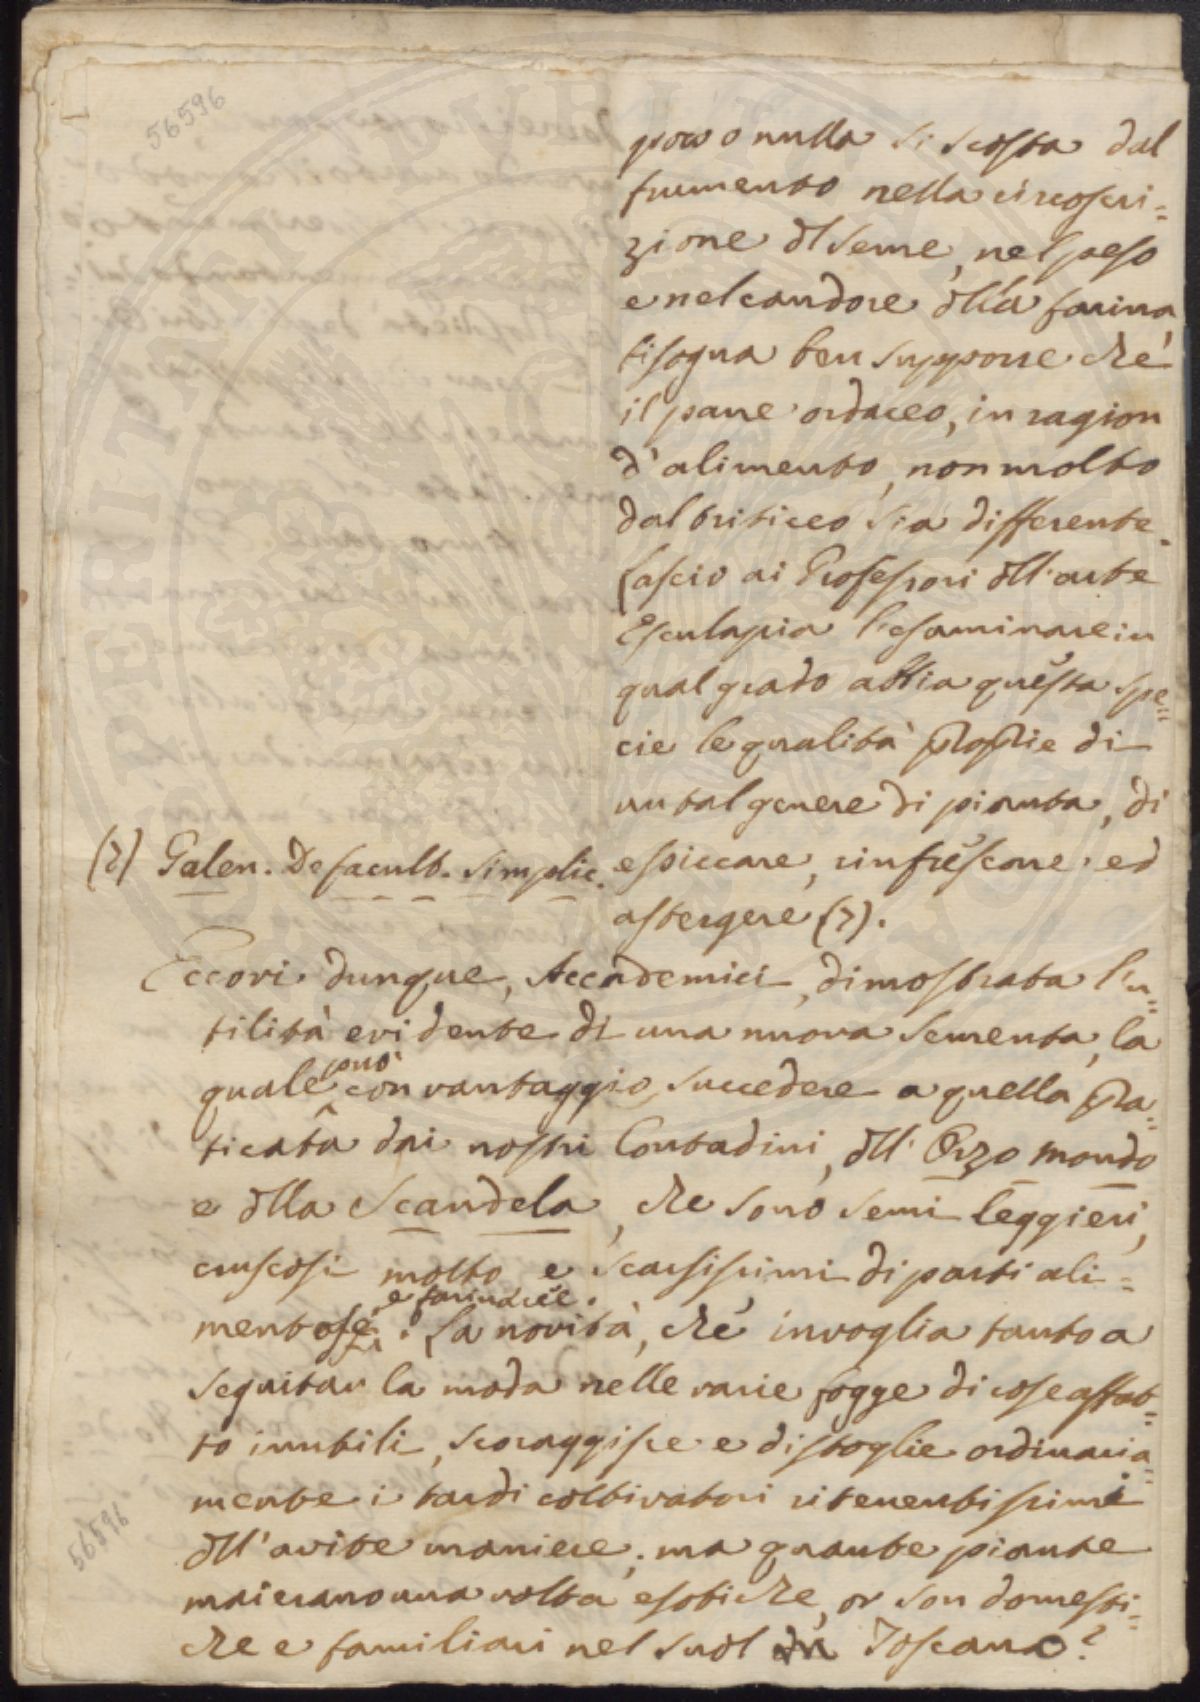 56596
poco o nulla si scosta dal
frumento nella circoscri=
zione dl seme, nel peso
e nel candore dlla farina,
bisogna ben supporre che
il pane ordaceo, in ragion
d'alimento, non molto
dal triticeo sia differente.
Lascio ai Professori dll'arte
Esculapia l'esaminare in
qual grado abbia questa spe=
cie le qualità proprie di
un tal genere di pianta, di
(2) Galen. De facult. simplic. essiccare, rinfrescare ed
astergere (2).
Eccovi dunque, Accademici, dimostrata l'u=
tilità evidente di una nuova sementa, la
quale può con vantaggio succedere a quella pra=
ticata dai nostri Contadini, dll' Orzo mondo
e dlla Scandela, che sono semi leggieri,
cruscosi molto e scarsissimi di parti ali=
mentose e farinacee. La novità, che invoglia tanto a
seguitar la moda nelle varie fogge di cose affat=
to inutili, scoraggisce e distoglie ordinaria=
mente i tardi coltivatori ritenentissimi
dll'avite maniere; ma quante piante
mai erano una volta esotiche, or son domesti=
che e familiari nel suol Toscano?
56596